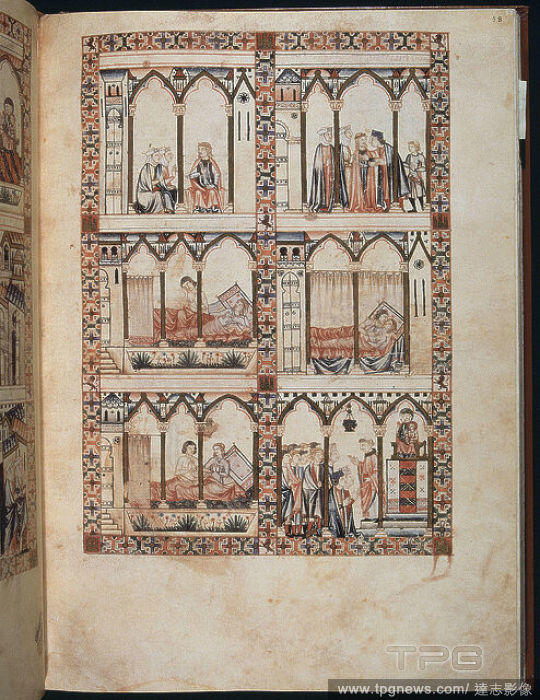 58
TPG
www.tpgnews.com/ 達志影像